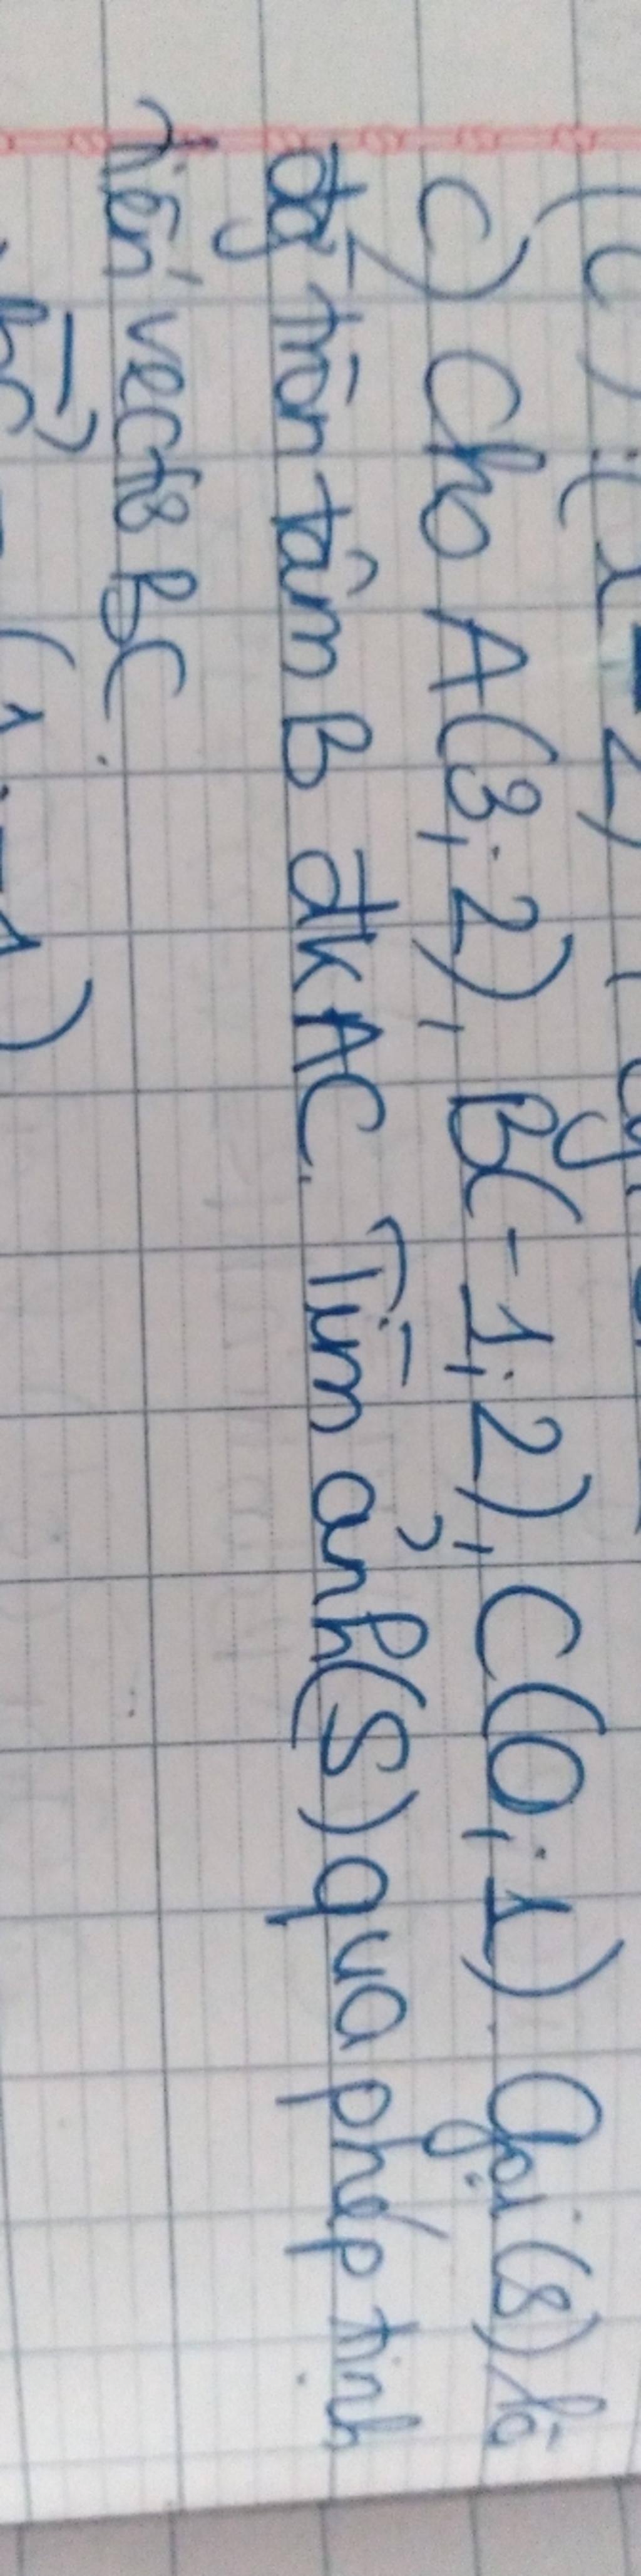 c) Cho A(3; 2), B(-1; 2), C(0; 1). Gọi (S) là
đg tròn tâm B đk AC. Tìm ảnh (S) qua phép tịnh
tiến vectơ BC.